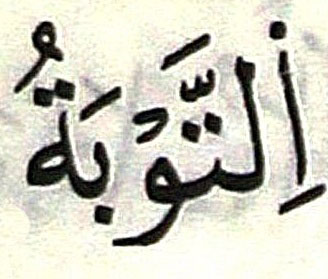 اِلتَّوْبَةُ